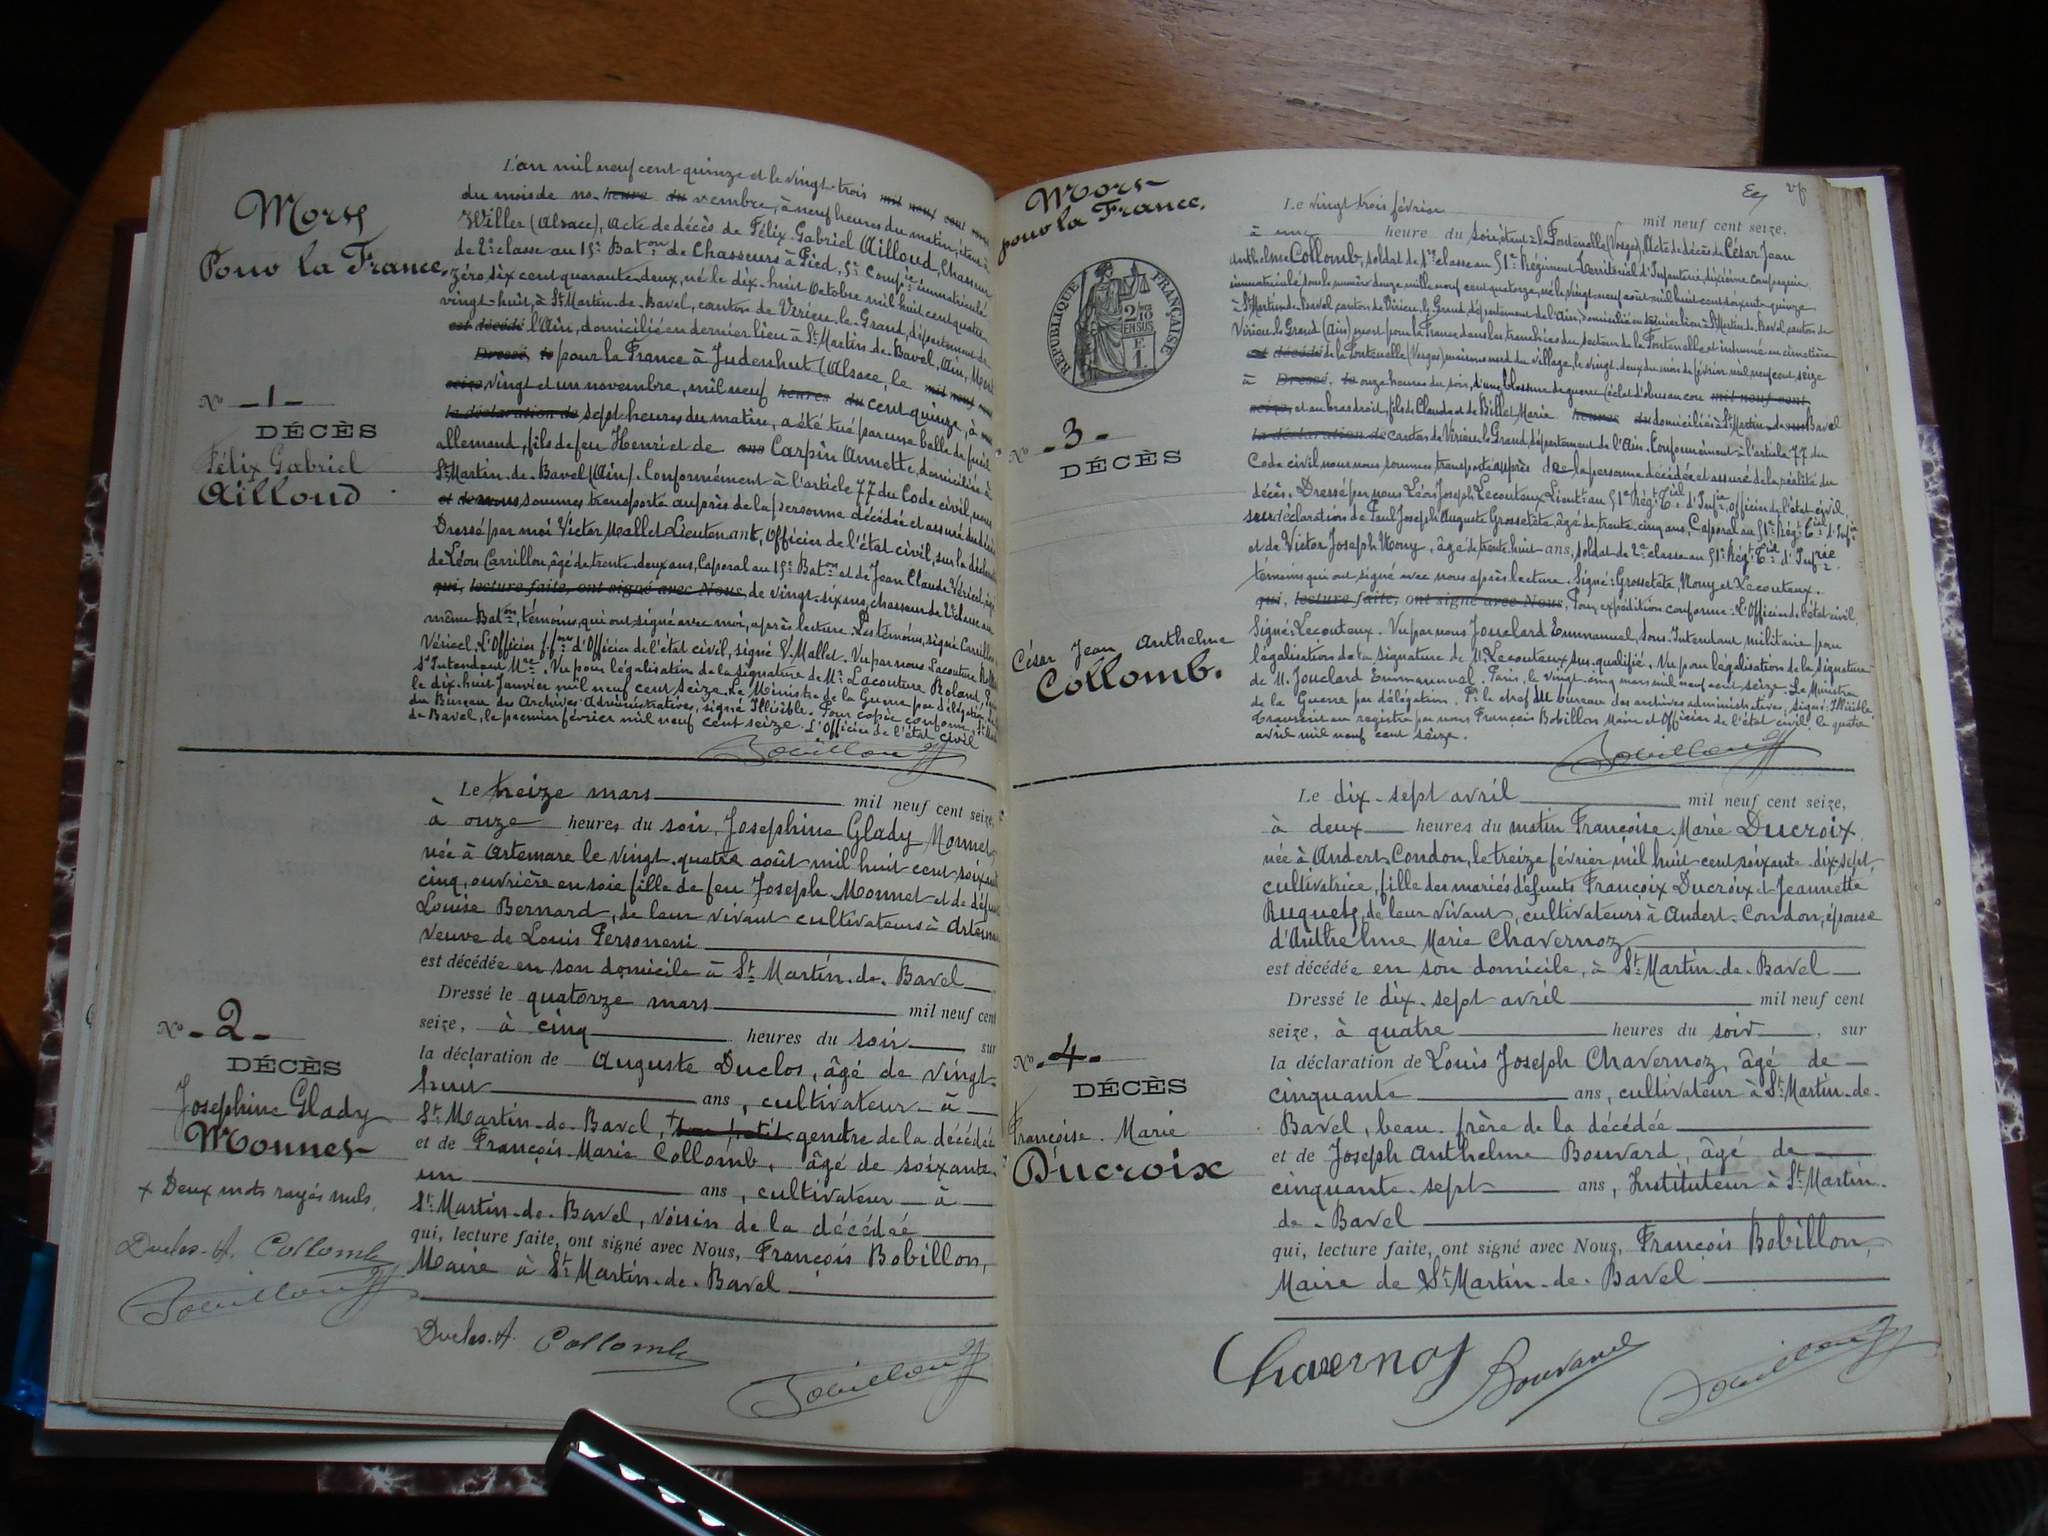 Mort
Pour la France.
L'an mil neuf cent quinze et le vingt-trois mil neuf cent
du mois de no- heure du vembre, à neuf heures du matin, étant à
Willer (Alsace), Acte de décès de Félix Gabriel Ailloud, Chasseur
de 2e classe au 15e Baton de Chasseurs à Pied, 5e Compie immatriculé
zéro six cent quarante-deux, né le dix-huit Octobre mil huit cent quatre
vingt-huit, à St Martin-de-Bavel, canton de Virieu-le-Grand, département de
est décédé l'Ain, domicilié en dernier lieu à St Martin-de-Bavel, Ain, Mort
Dressé, le pour la France à Judenhut (Alsace, le mil neuf cent
seize, vingt et un novembre, mil neuf heures du cent quinze, à
la déclaration de sept heures du matin, a été tué par une balle de fusil
allemand, fils de feu Henri et de ans Carpin Annette, domiciliée à
St Martin-de-Bavel (Ain). Conformément à l'article 77 du Code civil, nous
et de nous sommes transporté auprès de la personne décédée et assuré du décès
Dressé par moi Victor Mallet Lieutenant, Officier de l'état civil, sur la déclaration
de Léon Carrillon, âgé de trente-deux ans, Caporal au 15e Baton et de Jean Claude Véricel, âgé
qui, lecture faite, ont signé avec Nous, de vingt-six ans, chasseur de 2e classe au
même Baton, témoins, qui ont signé avec moi, après lecture. Les témoins, signé Carrillon,
Véricel. L'Officier f.fon d'Officier de l'état civil, signé V. Mallet. Vu par nous Lacouture
St Intendant Mre. Vu pour légalisation de la signature de Mr Lacouture Roland,
le dix-huit Janvier mil neuf cent seize. Le Ministre de la Guerre par délégation,
du Bureau des Archives Administratives, signé Illisible. Pour copie conforme, St Martin
de Bavel, le premier février mil neuf cent seize. L'Officier de l'état civil
Bobillon
No -1-
DÉCÈS
Félix Gabriel
Ailloud
Le treize mars mil neuf cent seize,
à onze heures du soir, Josephine Glady Monnet,
née à Artemare le vingt-quatre août mil huit cent soixante
cinq, ouvrière en soie fille de feu Joseph Monnet et de défunte
Louise Bernard, de leur vivant cultivateurs à Artemare
veuve de Louis Personeni
est décédée en son domicile à St Martin-de-Bavel
Dressé le quatorze mars mil neuf cent
seize, à cinq heures du soir sur
la déclaration de Auguste Duclos, âgé de vingt-
huit ans, cultivateur à
St Martin-de-Bavel, + gendre de la décédée
et de François Marie Collomb, âgé de soixante
un ans, cultivateur à
St Martin-de-Bavel, voisin de la décédée
qui, lecture faite, ont signé avec Nous, François Bobillon,
Maire à St Martin-de-Bavel
Duclos. A. Collomb
Bobillon
No -2-
DÉCÈS
Josephine Glady
Monnet
+ Deux mots rayés nuls.
Duclos. A. Collomb
Bobillon
Mort
pour la France.
RÉPUBLIQUE FRANÇAISE
2/10 EN SUS
E.
1.
Le vingt trois février mil neuf cent seize,
à une heure du soir, étant à la Fontenelle (Vosges), Acte de décès de César Jean
Anthelme Collomb, soldat de 1re classe au 51e Régiment Territorial d'Infanterie, dixième compagnie
immatriculé sous le numéro douze mille neuf cent quatorze, né le vingt-neuf août mil huit cent soixante-quinze
à St Martin-de-Bavel canton de Virieu-le-Grand, département de l'Ain, domicilié en dernier lieu à St Martin-de-Bavel, canton de
Virieu-le-Grand (Ain) mort pour la France, dans les tranchées du secteur de la Fontenelle et inhumé au cimetière
est décédé de la Fontenelle (Vosges) maison nord du village, le vingt-deux du mois de février mil neuf cent seize
à Dressé, le onze heures du soir, d'une blessure de guerre (éclat d'obus au cou mil neuf cent
seize, et au bras droit, fils de Claude et de Billet Marie heures du domiciliés à St Martin-de-Bavel
la déclaration de canton de Virieu-le-Grand, département de l'Ain. Conformément à l'article 77 du
Code civil nous nous sommes transporté auprès de la personne décédée et assuré de la réalité du
décès. Dressé par nous Léon Joseph Lecouteux Lieutt au 51e Régt Tial d'Infie, Officier de l'état civil,
sur déclaration de Paul Joseph Auguste Grossetête, âgé de trente cinq ans, Caporal au 51e Régt Tial d'Infie
et de Victor Joseph Mouy, âgé de trente huit ans, soldat de 2e classe au 51e Régt Tial d'Infie
témoins qui ont signé avec nous après lecture. Signé: Grossetête, Mouy et Lecouteux.
qui, lecture faite, ont signé avec Nous, Pour expédition conforme: L'Officier de l'état civil,
Signé: Lecouteux. Vu par nous Jouclard Emmanuel, Sous-Intendant militaire pour
légalisation de la signature de M. Lecouteux sus-qualifié. Vu pour légalisation de la signature
de M. Jouclard Emmanuel. Paris, le vingt-cinq mars mil neuf cent seize. Le Ministre
de la Guerre par délégation. Pr le chef du bureau des archives administratives, signé: Illisible.
Transcrit au registre par nous François Bobillon Maire et Officier de l'état civil, le quatre
avril mil neuf cent seize.
Bobillon
No -3-
DÉCÈS
César Jean Anthelme
Collomb.
Le dix-sept avril mil neuf cent seize,
à deux heures du matin Françoise Marie Ducroix
née à Andert-Condon, le treize février mil huit cent soixante-dix-sept,
cultivatrice, fille des mariés défunts François Ducroix et Jeannette
Ruquet, de leur vivant, cultivateurs à Andert-Condon, épouse
d'Anthelme Marie Chavernoz
est décédée en son domicile, à St Martin-de-Bavel
Dressé le dix-sept avril mil neuf cent
seize, à quatre heures du soir, sur
la déclaration de Louis Joseph Chavernoz, âgé de
cinquante ans, cultivateur à St Martin-de-
Bavel, beau-frère de la décédée
et de Joseph Anthelme Bouvard, âgé de
cinquante-sept ans, Instituteur à St Martin-
de-Bavel
qui, lecture faite, ont signé avec Nous, François Bobillon,
Maire de St Martin-de-Bavel
Chavernoz Bouvard Bobillon
No -4-
DÉCÈS
Françoise Marie
Ducroix